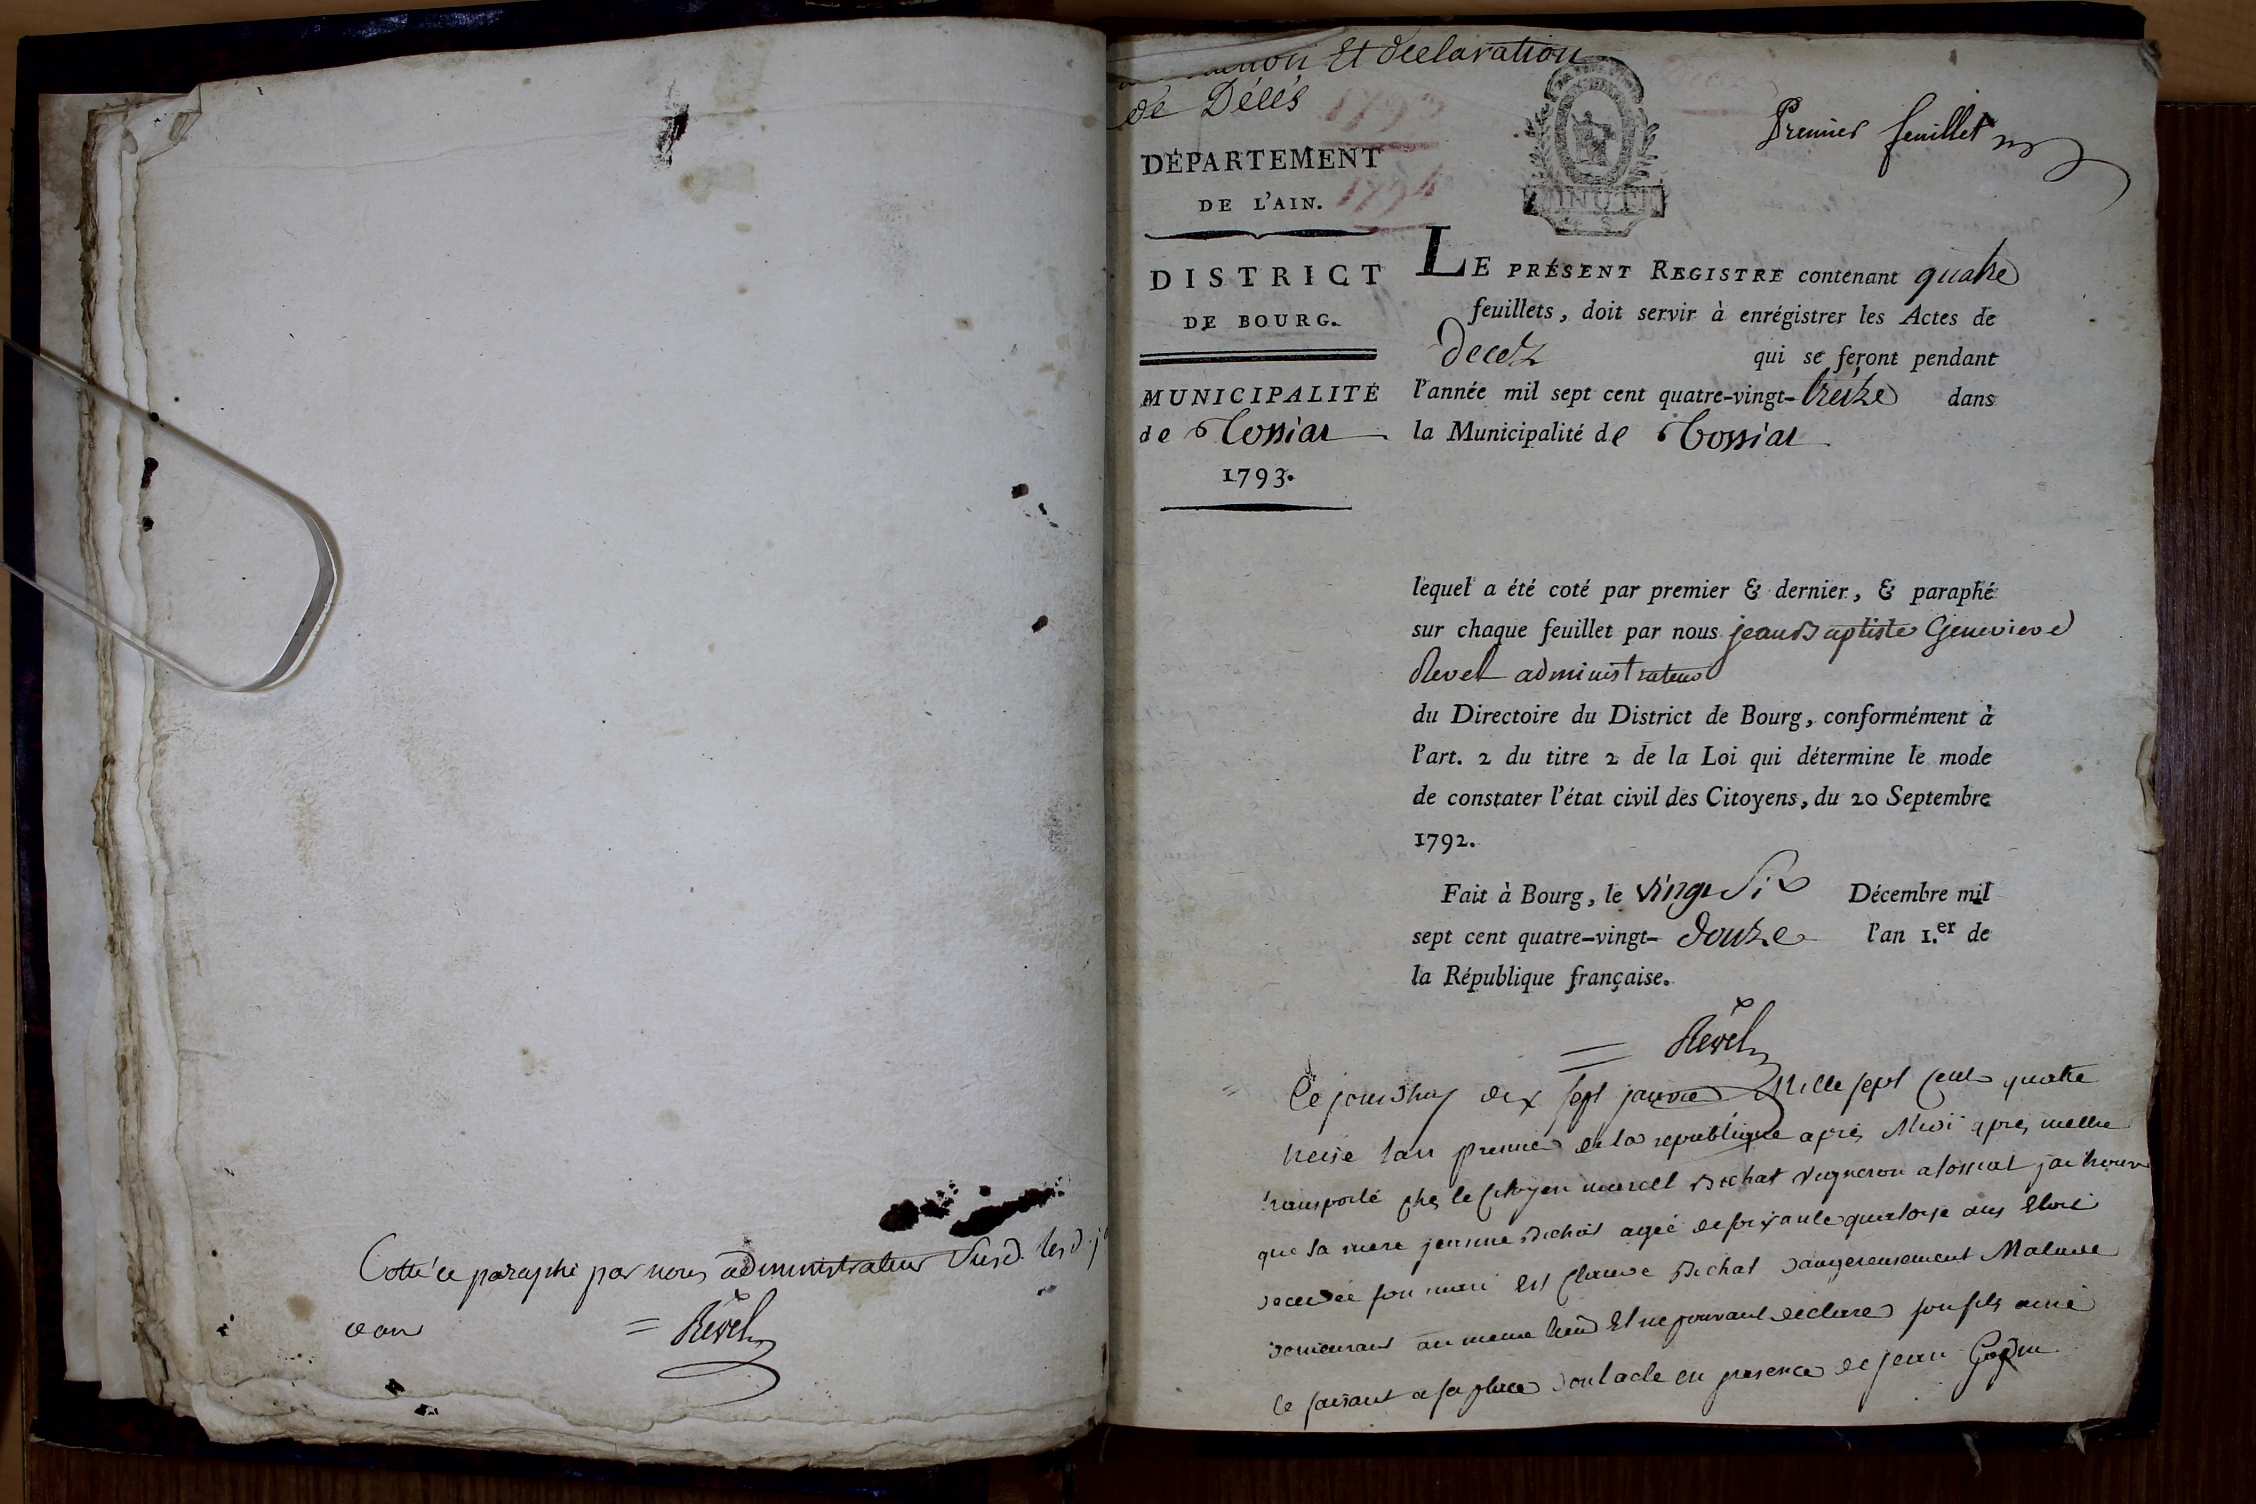 Cotté ce paraphé par nous administrateur Susd. les d. j
 an
= Revel
Et declaration
de Décés
1793
1794
Premier feuillet
DÉPARTEMENT
DE L'AIN.
DISTRICT
DE BOURG.
MUNICIPALITÉ
de Tossiat
1793.
LE PRÉSENT REGISTRE contenant quatre
feuillets, doit servir à enrégistrer les Actes de
decez qui se feront pendant
l'année mil sept cent quatre-vingt-treize dans
la Municipalité de Tossiat
lequel a été coté par premier & dernier, & paraphé
sur chaque feuillet par nous jean Baptiste Genevieve
Revel administrateur
du Directoire du District de Bourg, conformément à
l'art. 2 du titre 2 de la Loi qui détermine le mode
de constater l'état civil des Citoyens, du 20 Septembre
1792.
Fait à Bourg, le vingt Six Décembre mil
sept cent quatre-vingt-douze l'an 1.er de
la République française.
= Revel
Ce jourdhuy dix sept janvier Mille sept cent quatre
treise lan premier de la republique aprés Midi aprés mettre
transporté ches le Citoyen marcel Bichat vigneron a tossiat jai trouvé
que sa mere jeanne Bichat agée de soixante quatorze ans Etoit
decedée son mari Est Claude Bichat dangereusement Malade
demeurant au meme lieu Et ne pouvant declarer son fils ainé
le faisant a sa place dont acte en presence de jean